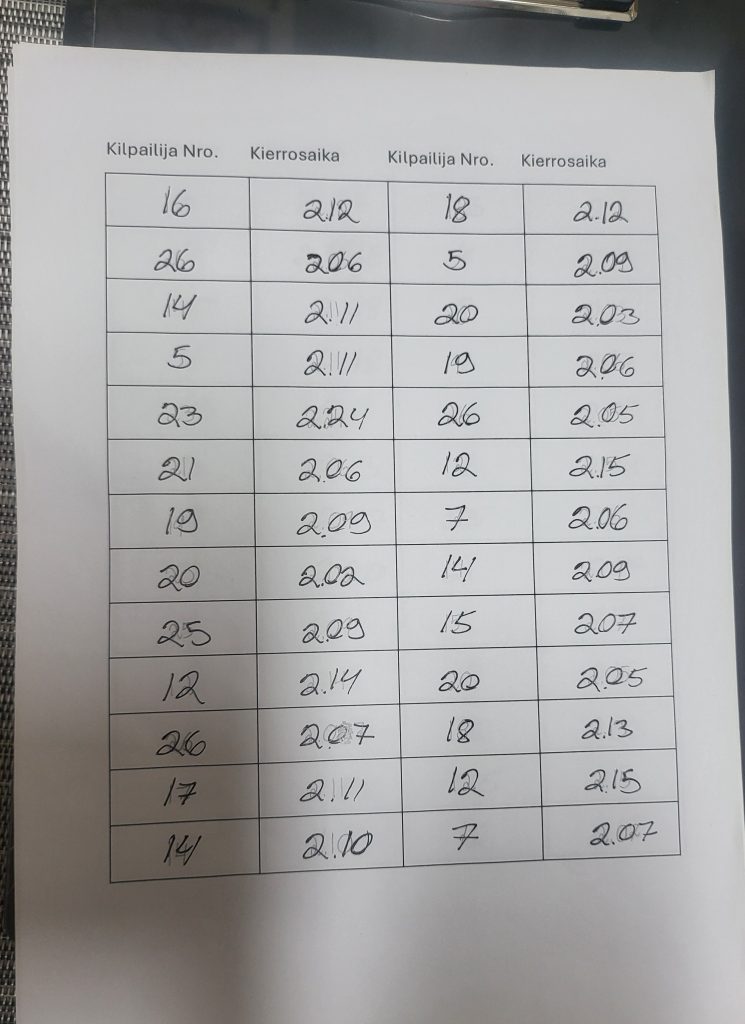 Kilpailija Nro. Kierrosaika Kilpailija Nro. Kierrosaika
16 2.12 18 2.12
26 206 5 2.09
14 2.11 20 2.03
5 2.11 19 2.06
23 2.24 26 2.05
21 2.06 12 2.15
19 2.09 7 2.06
20 2.02 14 2.09
25 2.09 15 207
12 2.14 20 2.05
26 2.07 18 2.13
17 2.11 12 2.15
14 2.10 7 2.07